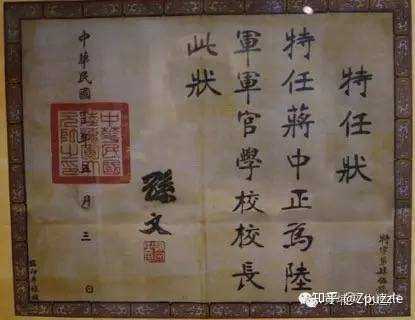 特任狀
特任蔣中正為陸
軍軍官學校校長
此狀
孫文
中華民國
年五月三日
知乎 @Zpuzzle